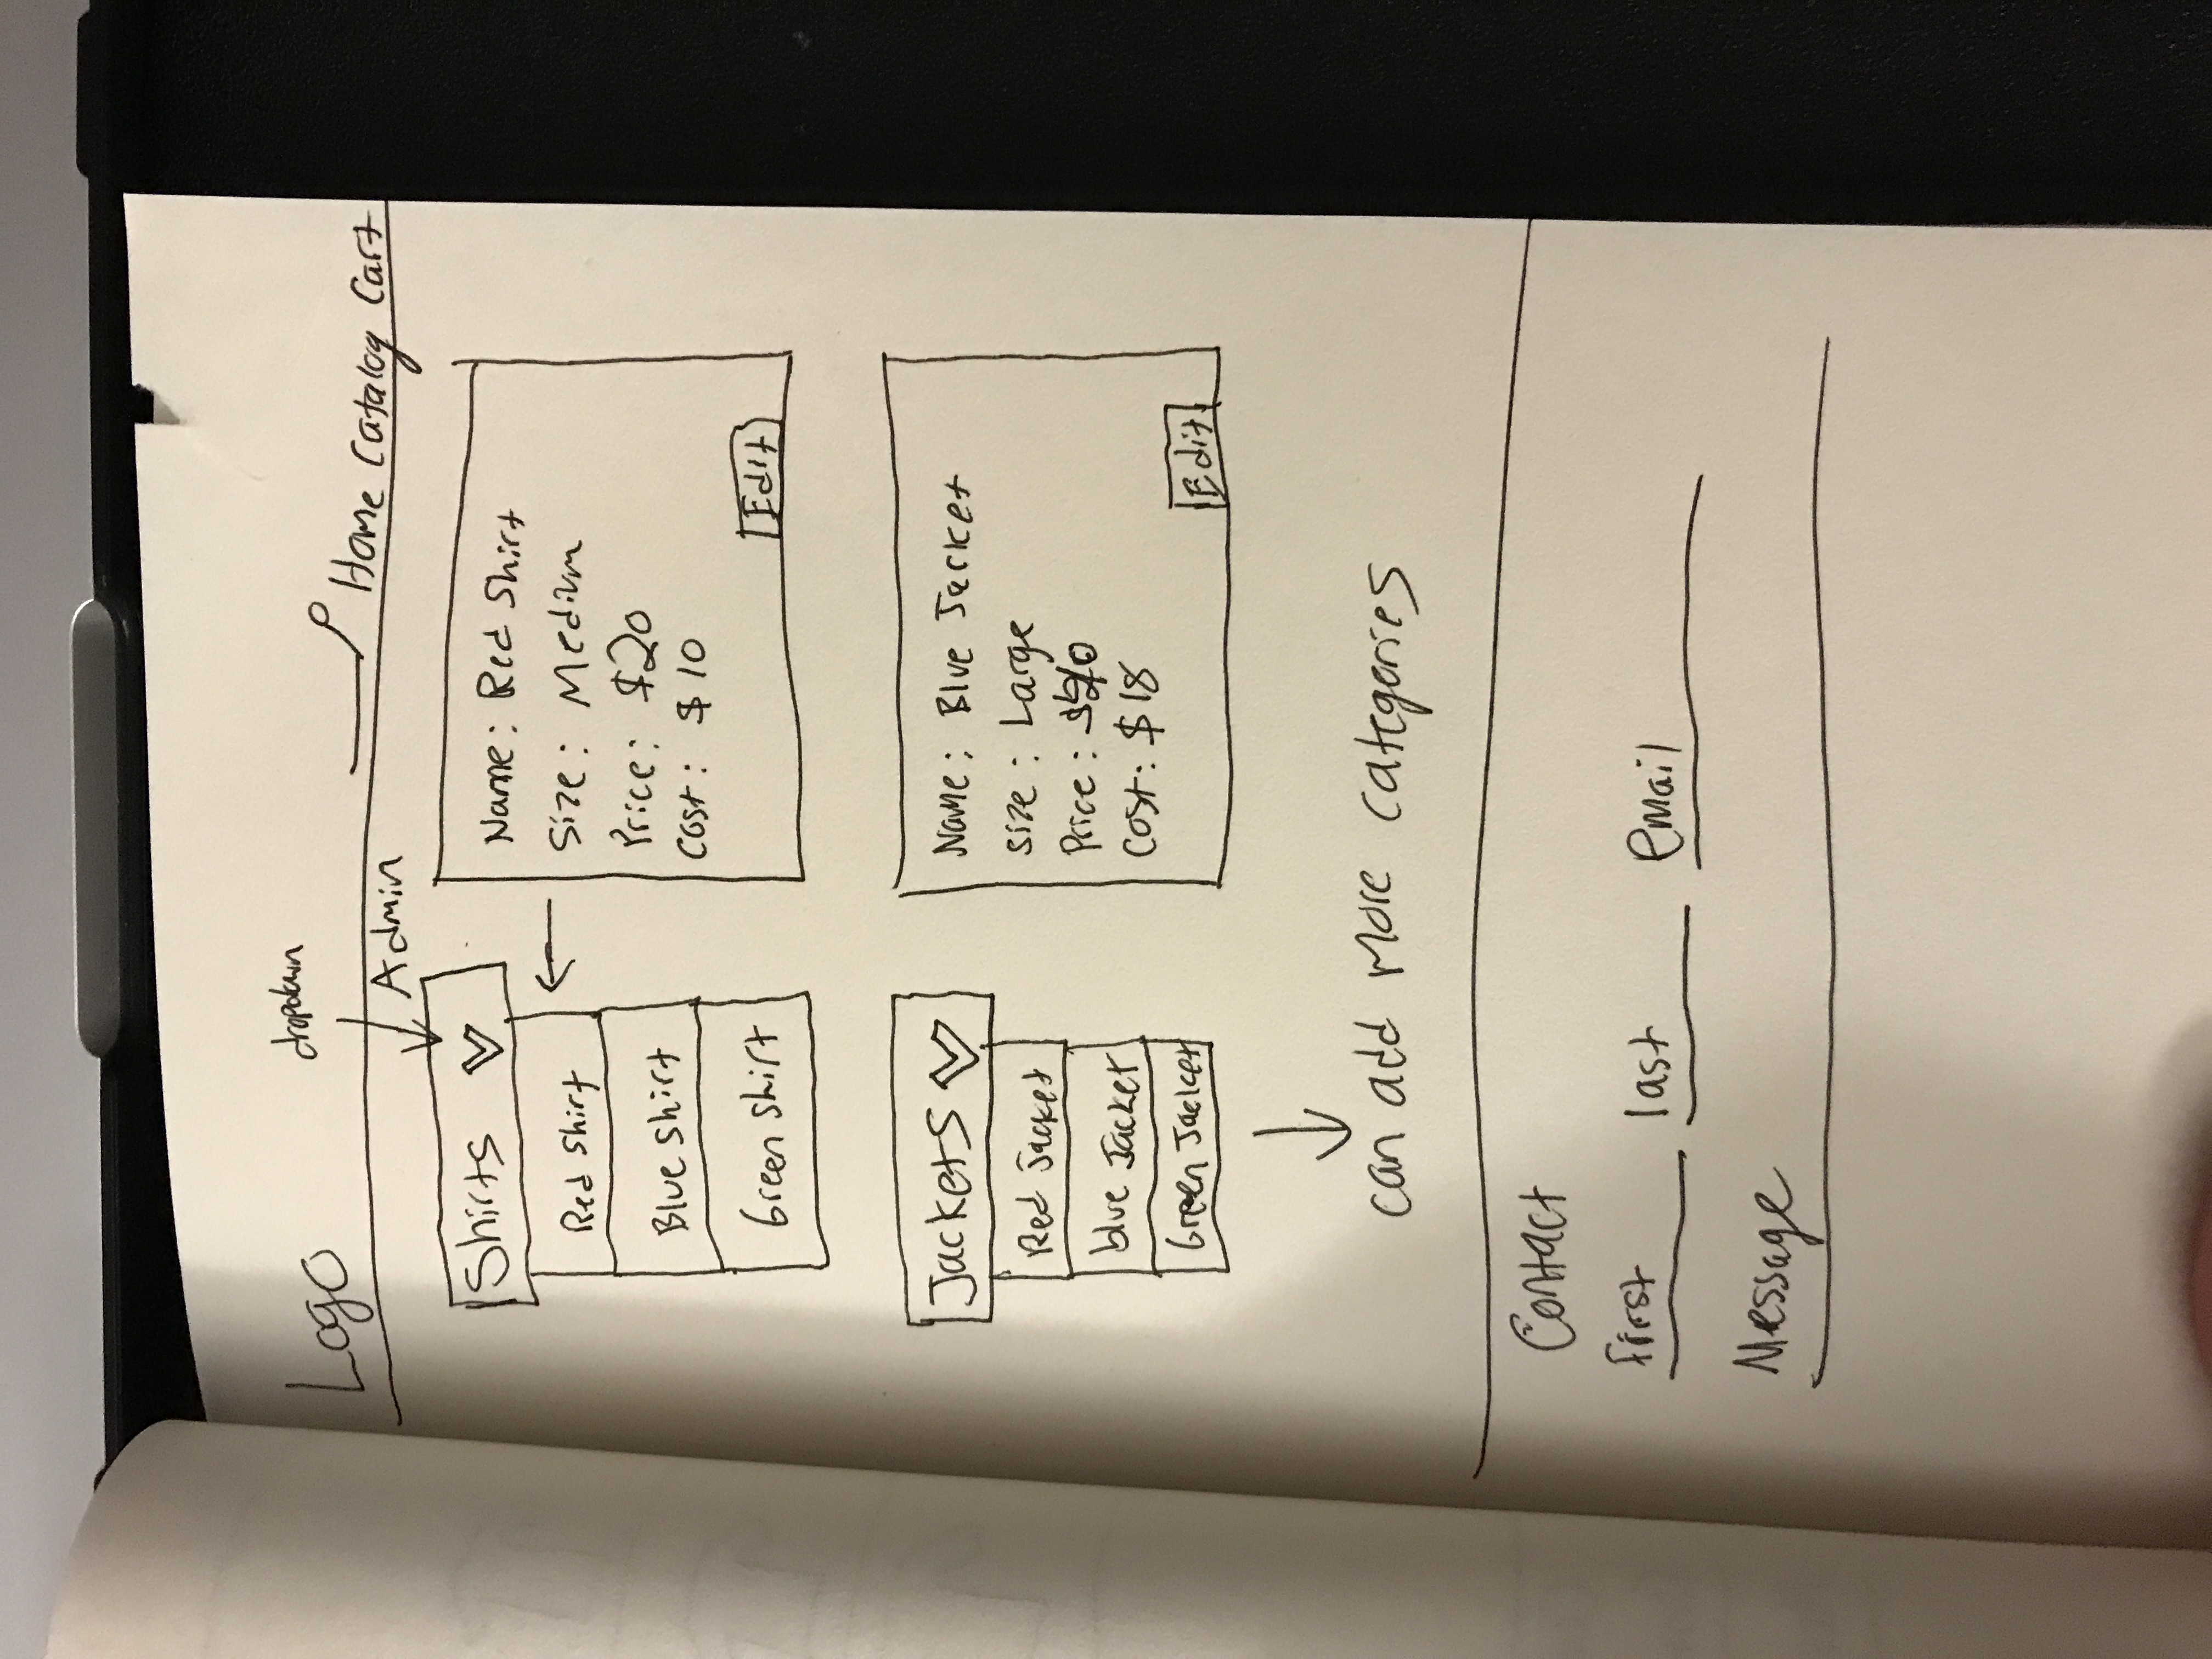 Logo
dropdown
Home Catalog Cart
Admin
Shirts
Red Shirt
Blue Shirt
Green Shirt
Name: Red Shirt
Size: Medium
Price: $20
Cost: $10
Edit
Jackets
Red Jacket
blue Jacket
Green Jacket
Name: Blue Jacket
Size: Large
Price:
Cost: $18
Edit
can add more categories
Contact
first
last
email
Message